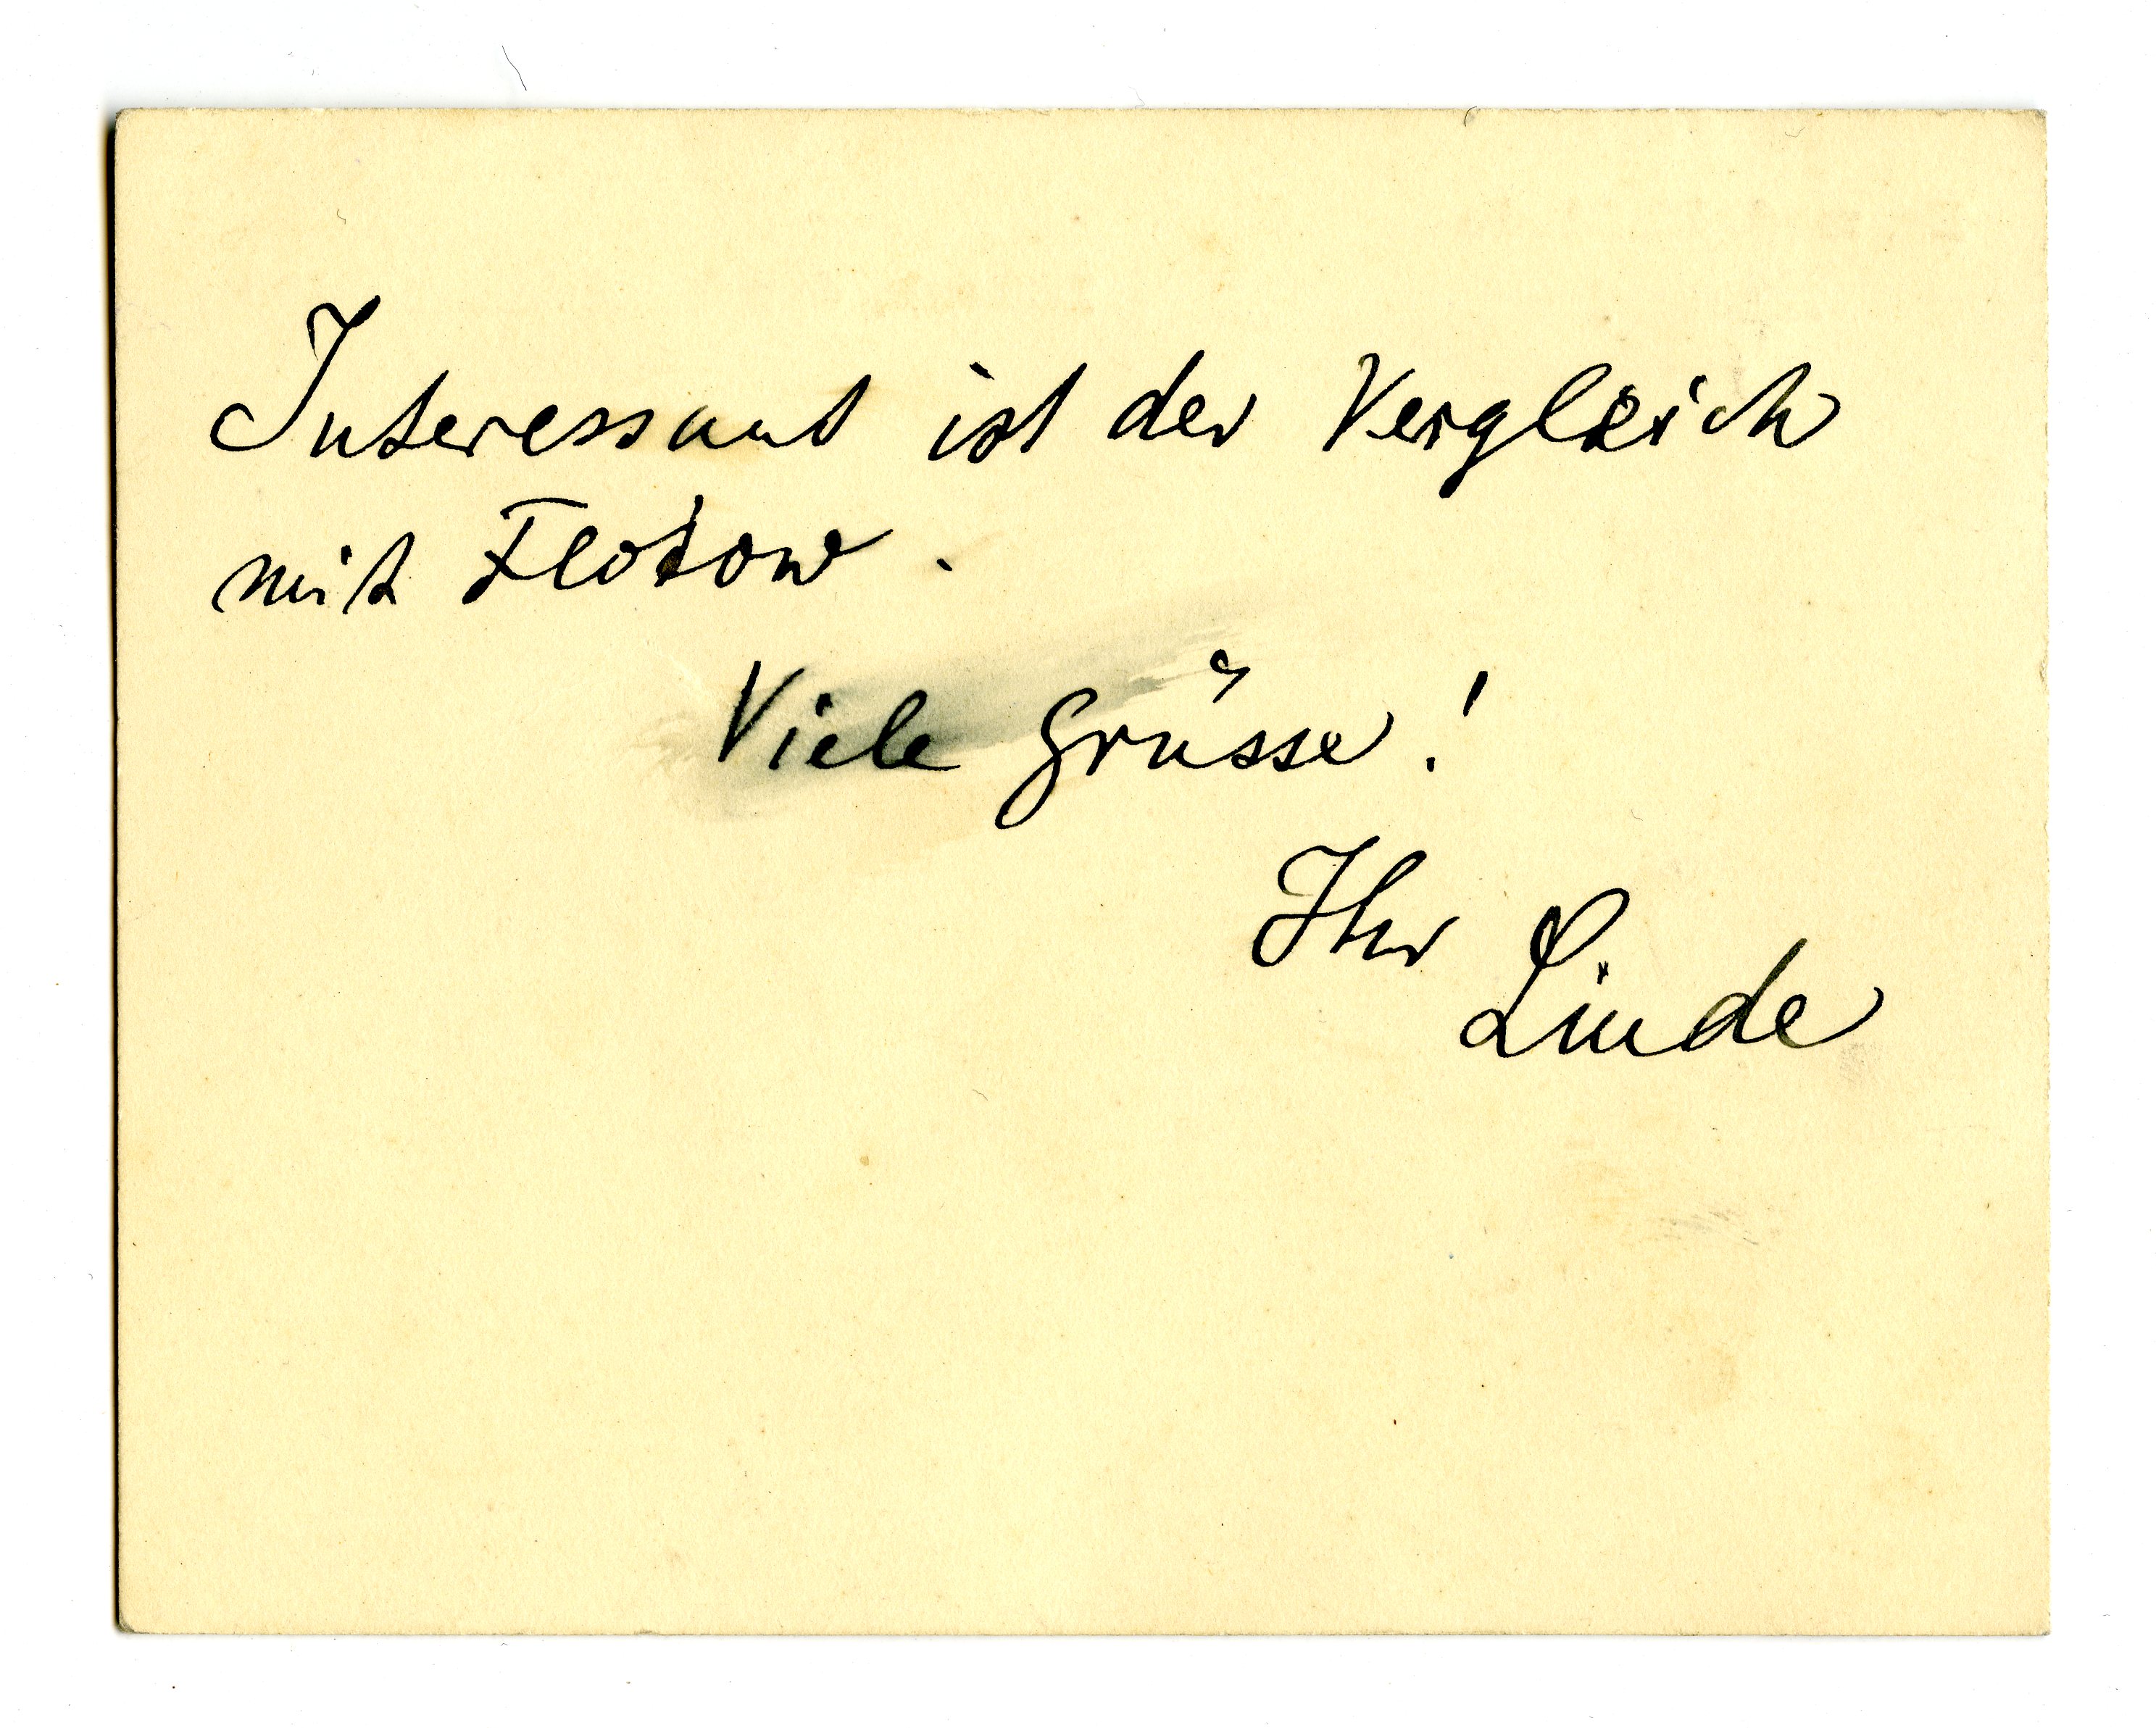 Interessant ist der Vergleich
mit Flotow.
Viele Grüsse!
Ihr
Linde